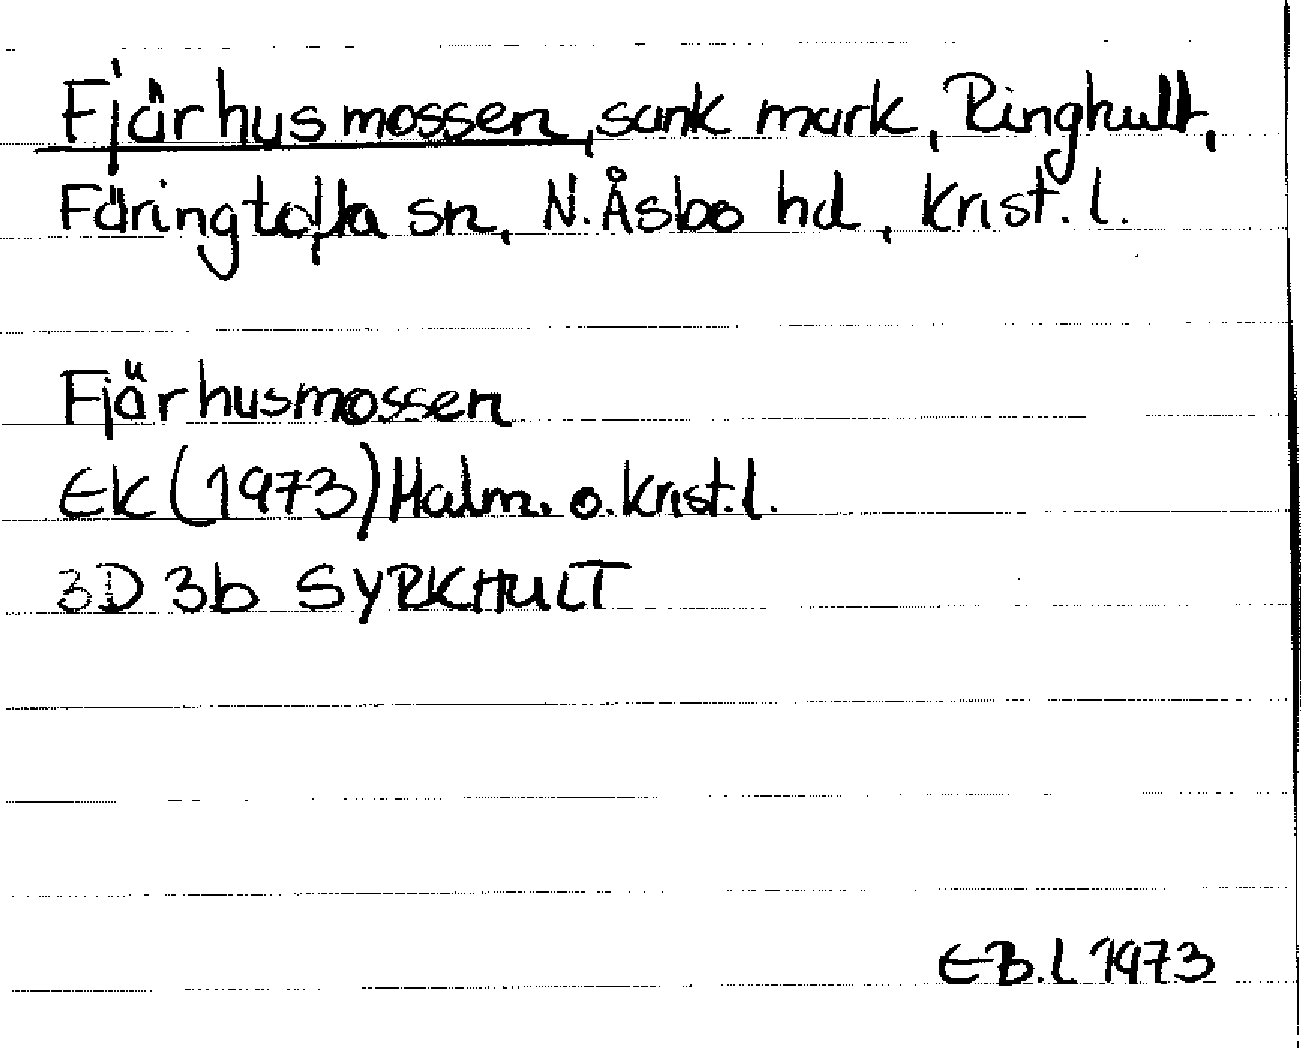 Fjärhusmossen, sank mark, Ringhult,
Färingtofta sn, N. Åsbo hd, Krist. l.
Fjärhusmossen
Ek (1973) Malm. o. Krist. l.
3D 3b SYRKHULT
EB.L 1973